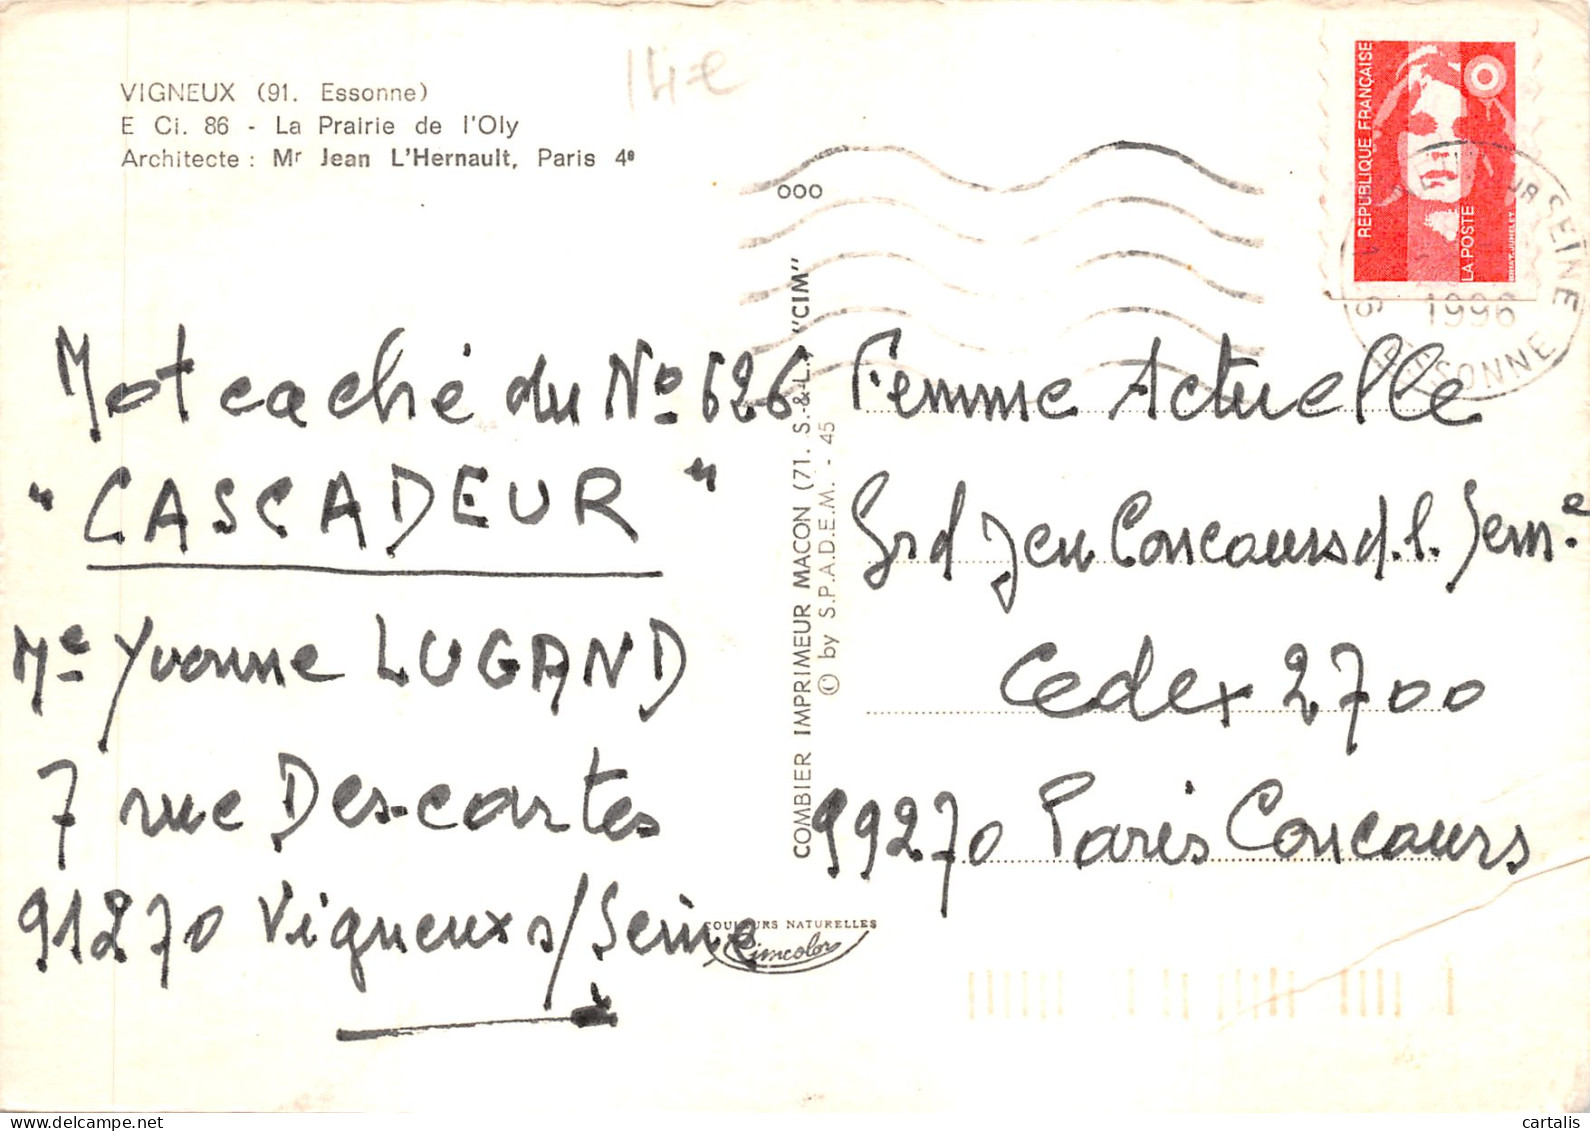 14e
VIGNEUX (91. Essonne)
E Ci. 86 - La Prairie de l'Oly
Architecte : Mr Jean L'Hernault, Paris 4e
000
REPUBLIQUE FRANÇAISE
LA POSTE
UR SEINE
1996
ESSONNE
Mot caché du No 626
"CASCADEUR"
Me Yvonne LUGAND
7 rue Descartes
91270 Vigneux s/Seine
COMBIER IMPRIMEUR MACON (71. S.-&-L.) "CIM"
© by S.P.A.D.E.M. - 45
COULEURS NATURELLES
Cimcolor
Femme Actuelle
Grd Jeu Concours d.l. Seme
Cedex 2700
99270 Paris Concours
cartalis
delcampe.net